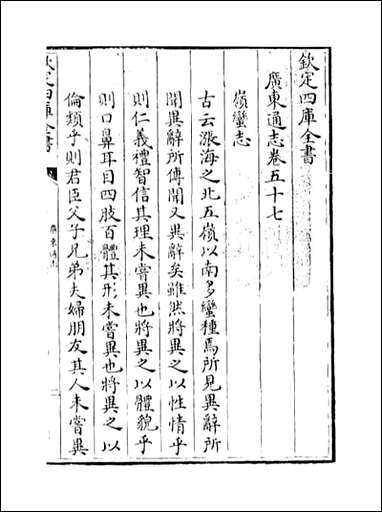 欽定四庫全書
廣東通志卷五十七
嶺蠻志
古云漲海之北五嶺以南多蠻種焉所見異辭所
聞異辭所傳聞又異辭矣雖然將異之以性情乎
則仁義禮智信其理未嘗異也將異之以體貌乎
則口鼻耳目四肢百體其形未嘗異也將異之以
倫類乎則君臣父子兄弟夫婦朋友其人未嘗異
欽定四庫全書